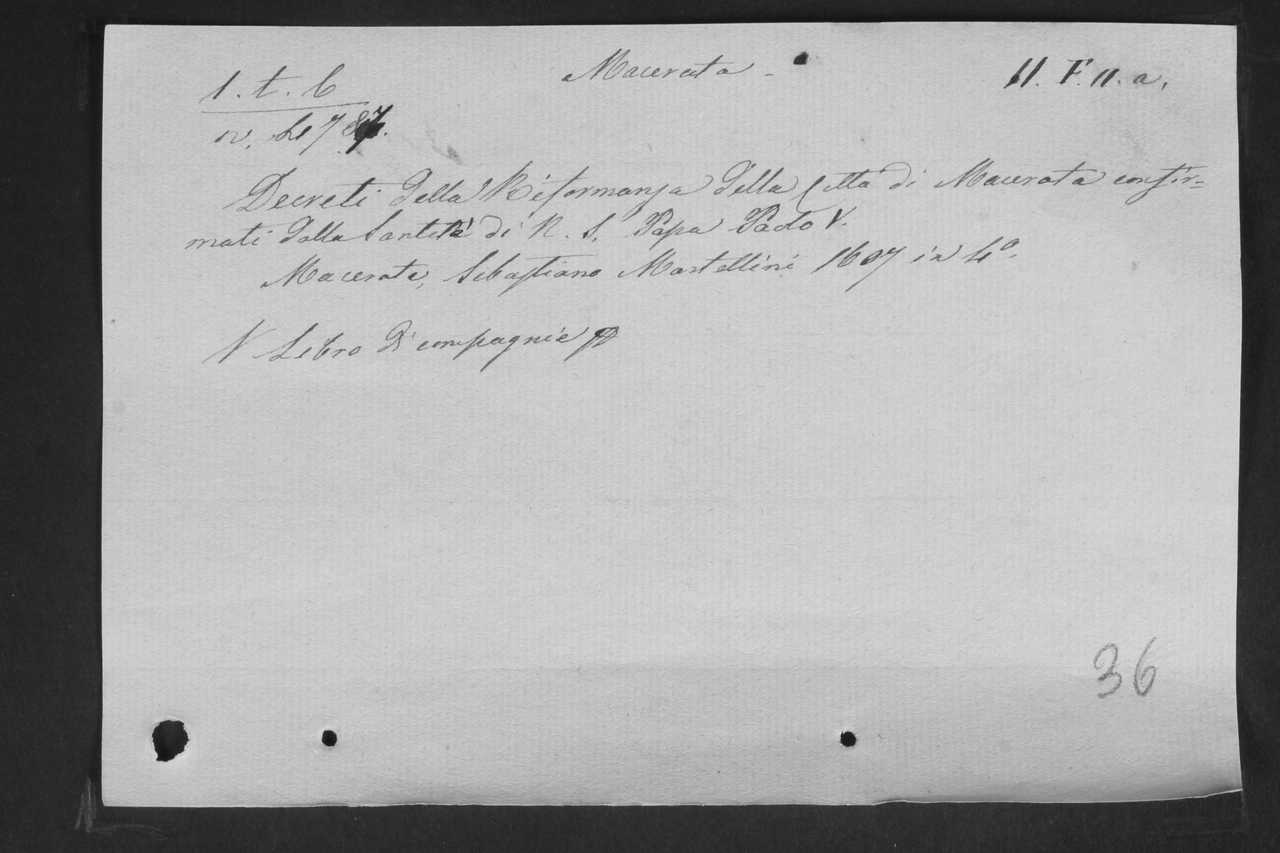 1. t. b
Macerata -
11. F. 11. a.
Decreti della Riformanza della Città di Macerata confir=
mati dalla Santità di N. S. Papa Paolo V.
Macerata, Sebastiano Martellini 1607 in 4º.
V Libro di compagnie
36